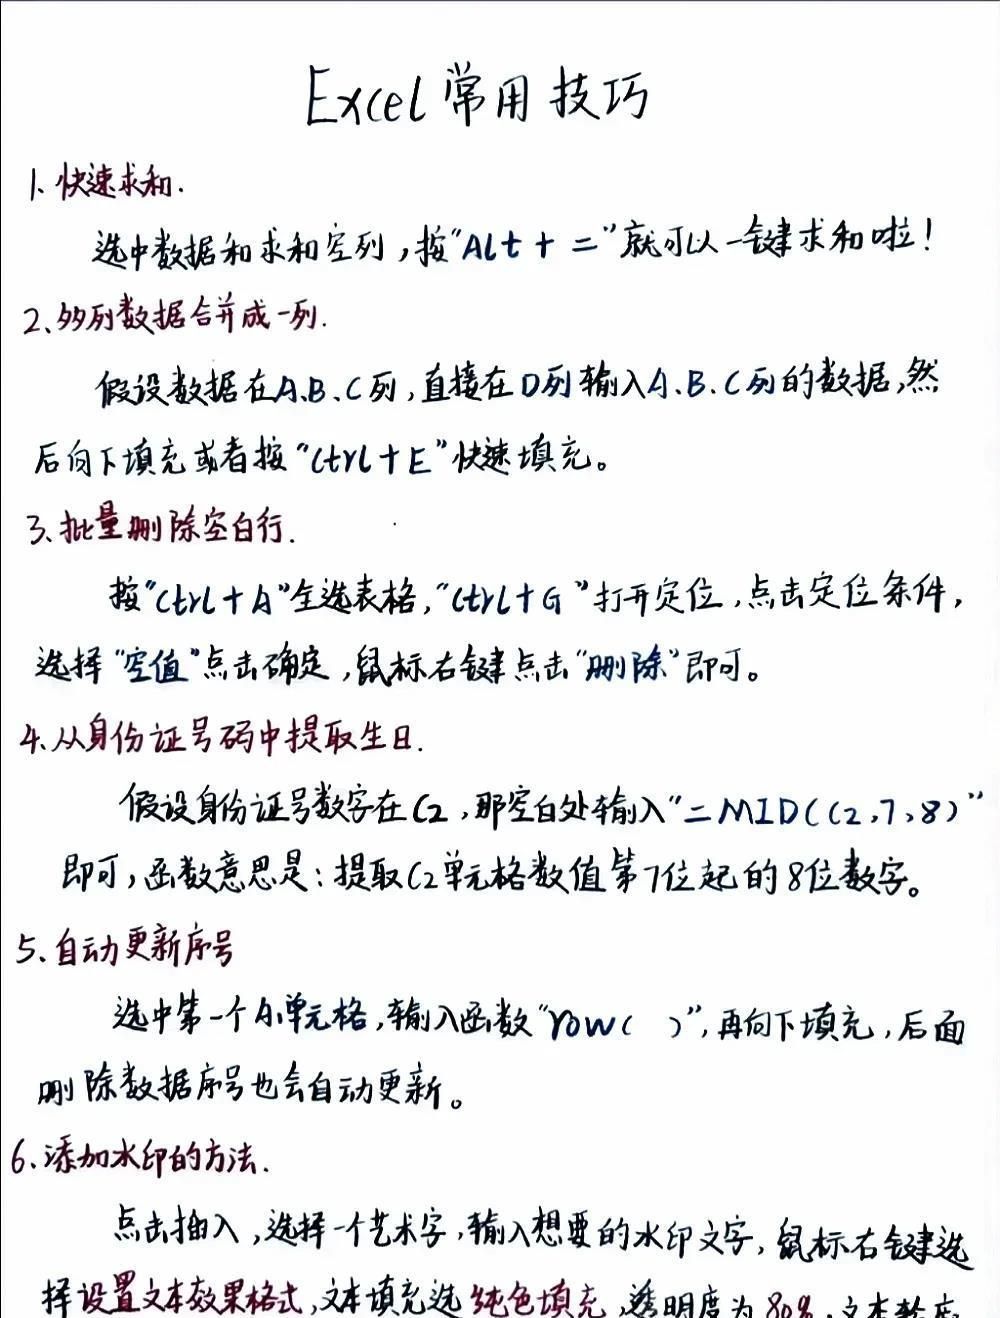 Excel常用技巧
1、快速求和.
选中数据和求和空列,按"Alt + ="就可以一键求和啦!
2、多列数据合并成一列.
假设数据在A.B.C列,直接在D列输入A.B.C列的数据,然
后向下填充或者按"Ctrl+E"快速填充。
3、批量删除空白行.
按"Ctrl+A"全选表格,"Ctrl+G"打开定位,点击定位条件,
选择"空值"点击确定,鼠标右键点击"删除"即可。
4、从身份证号码中提取生日.
假设身份证号数字在C2,那空白处输入"=MID(C2,7,8)"
即可,函数意思是:提取C2单元格数值第7位起的8位数字。
5、自动更新序号
选中第一个A1单元格,输入函数"row( )",再向下填充,后面
删除数据序号也会自动更新。
6、添加水印的方法.
点击插入,选择一个艺术字,输入想要的水印文字,鼠标右键选
择设置文本效果格式,文本填充选纯色填充,透明度为80%,文本